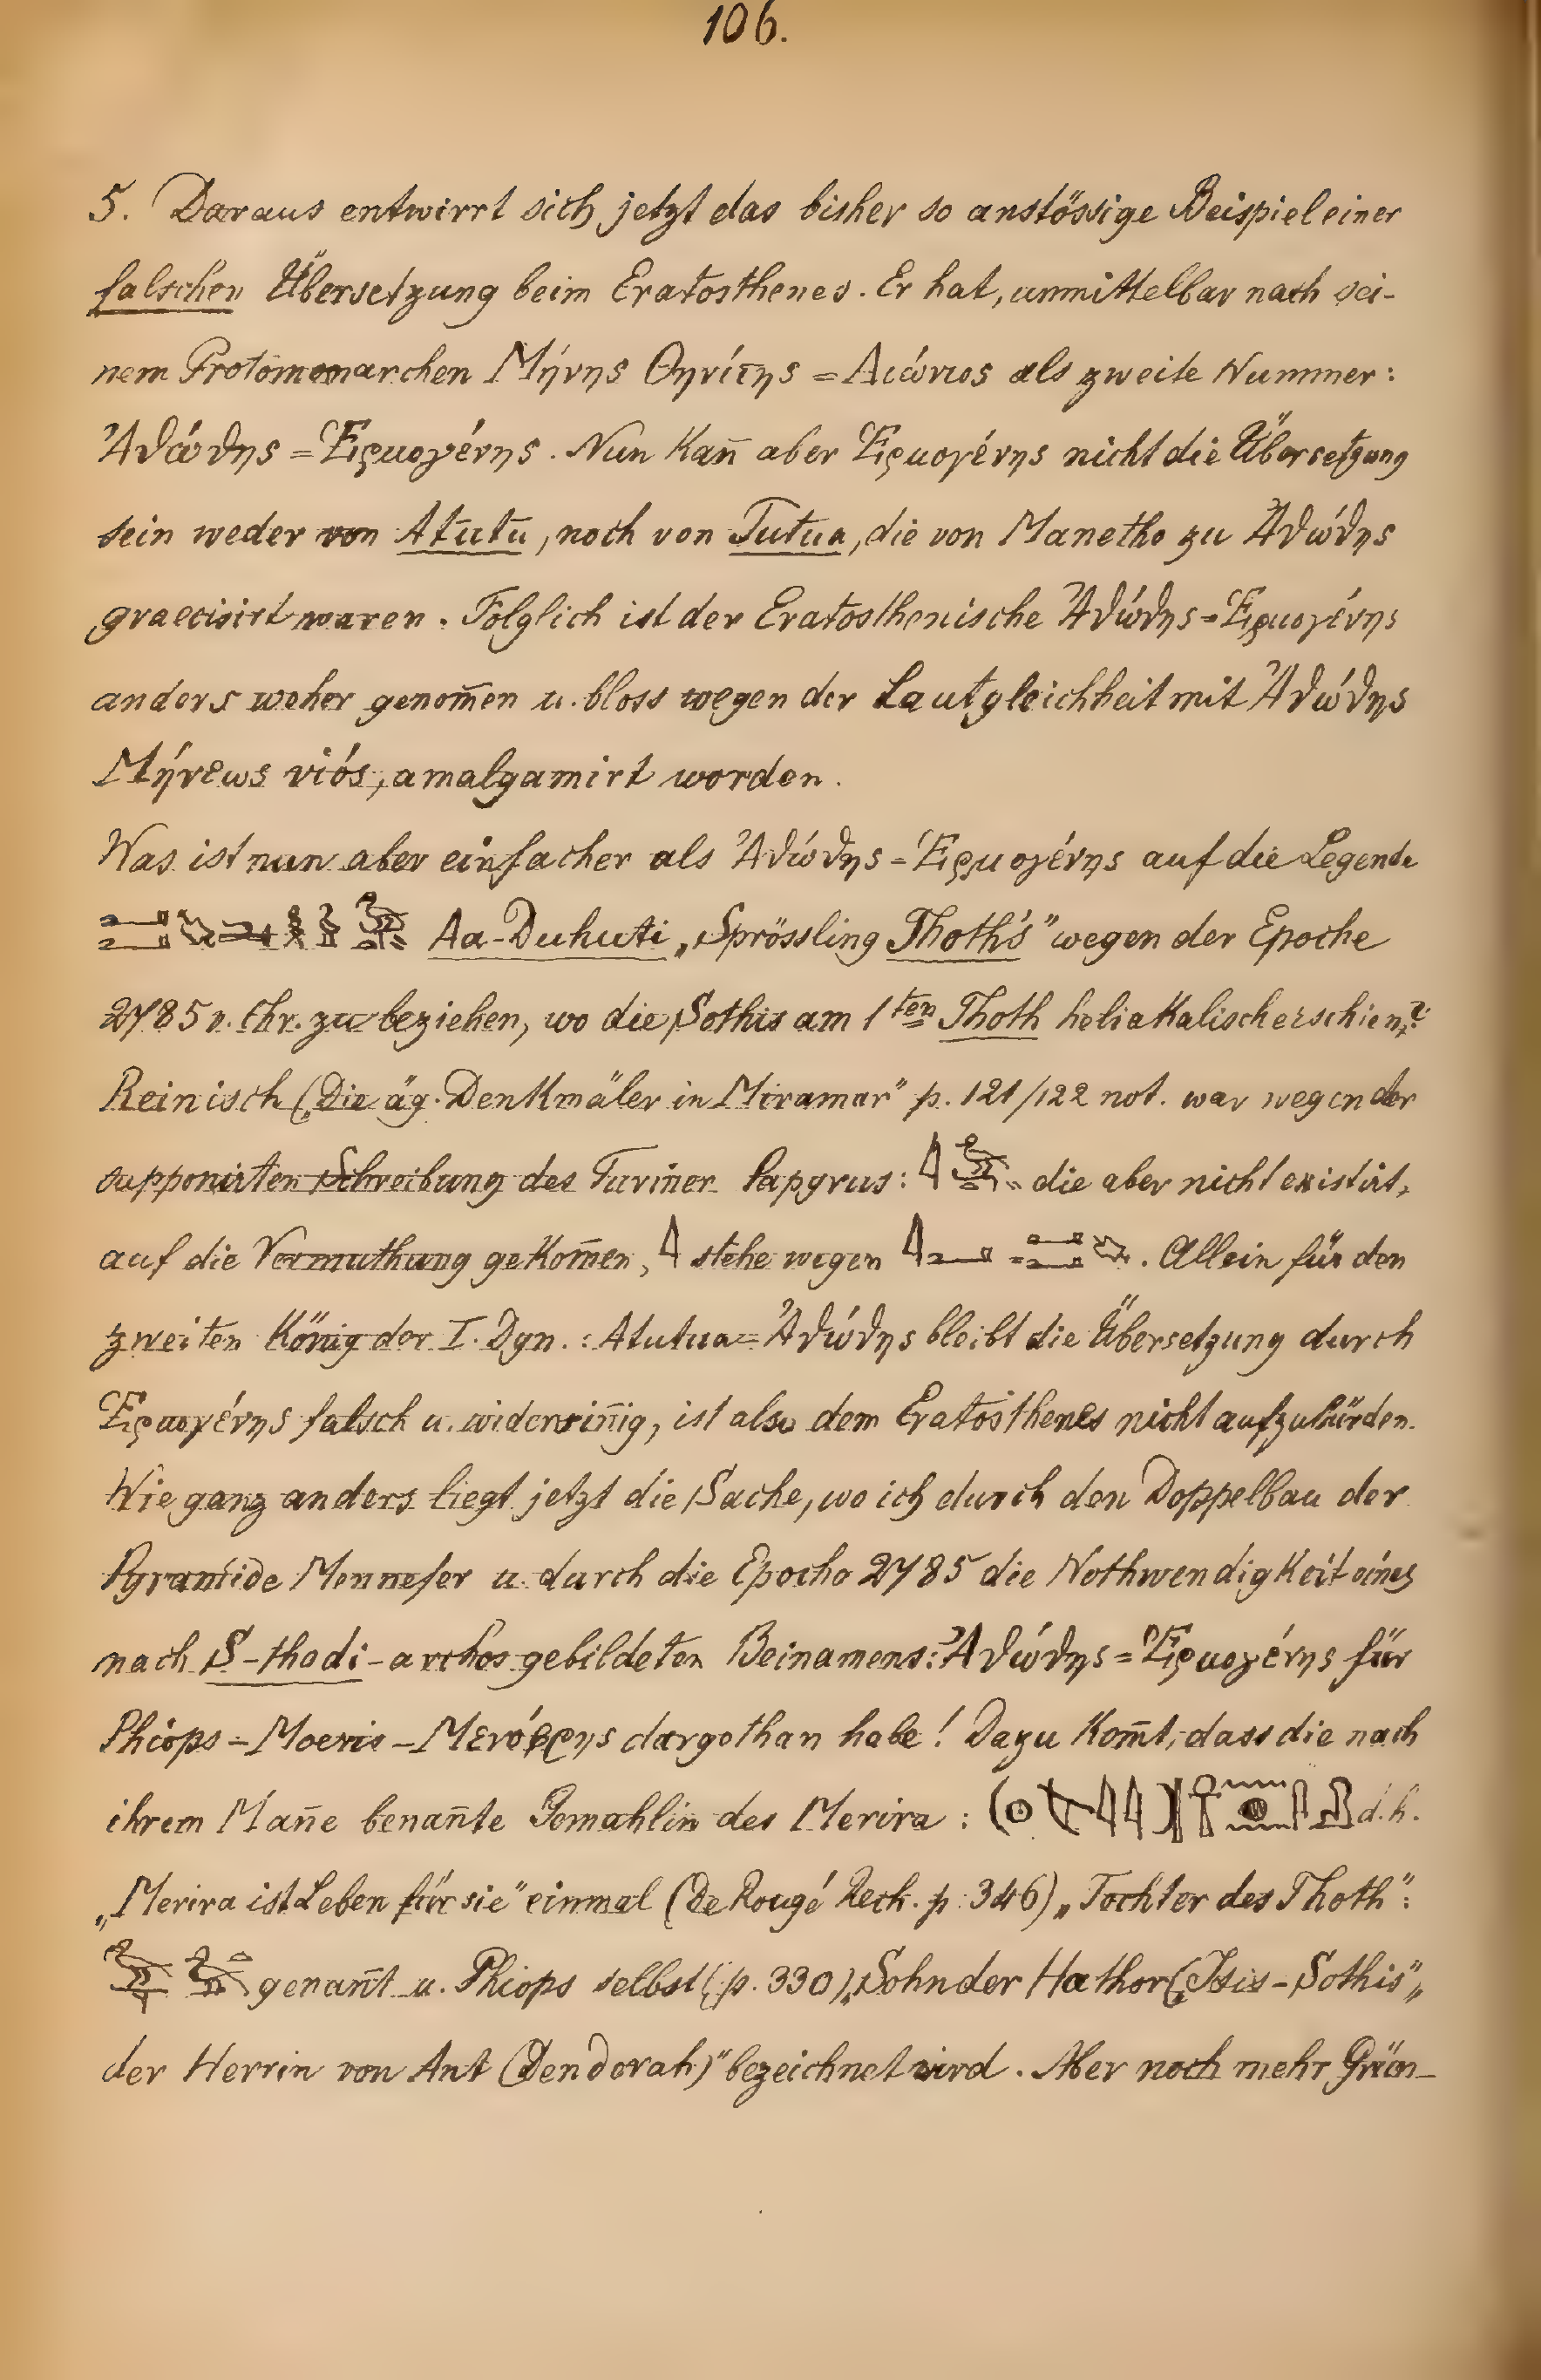 106.
5. Daraus entwirrt sich jetzt das bisher so anstössige Beispiel einer
falschen Übersetzung beim Eratosthenes. Er hat, unmittelbar nach sei-
nem Protomonarchen Μήνης Θηνίτης = Αιώνιος als zweite Nummer:
Ἀθώθης = Ἑρμογένης. Nun kañ aber Ἑρμογένης nicht die Übersetzung
sein weder von Atutu, noch von Tutua, die von Manetho zu Ἀθώθης
graecisirt waren. Folglich ist der Eratosthenische Ἀθώθης = Ἑρμογένης
anders woher genom̄en u. bloss wegen der Lautgleichheit mit Ἀθώθης
Μήνεως υἱός, amalgamirt worden.
Was ist nun aber einfacher als Ἀθώθης = Ἑρμογένης auf die Legende
Aa-Duhuti „Sprössling Thoth's" wegen der Epoche
2785 v. Chr. zu beziehen, wo die Sothis am 1ten Thoth heliakalisch erschien?
Reinisch („Die äg. Denkmäler in Miramar" p. 121/122 not. war wegen der
supponirten Schreibung des Turiner Papyrus: die aber nicht existirt,
auf die Vermuthung gekom̄en, stehe wegen = . Allein für den
zweiten König der I. Dyn.: Atutua = Ἀθώθης bleibt die Übersetzung durch
Ἑρμογένης falsch u. widersin̄ig, ist also dem Eratosthenes nicht aufzubürden.
Wie ganz anders liegt jetzt die Sache, wo ich durch den Doppelbau der
Pyramide Mennefer u. durch die Epoche 2785 die Nothwendigkeit eines
nach S-thodi-archos gebildeten Beinamens: Ἀθώθης = Ἑρμογένης für
Phiops – Moeris – dargethan habe! Dazu kom̄t, dass die nach
ihrem Mañe benañte Gemahlin des Merira: d. h.
„Merira ist Leben für sie" einmal (de Rougé Rech. p. 346) „Tochter des Thoth":
genañt u. Phiops selbst (p. 330) „Sohn der Hathor („Isis – Sothis",
der Herrin von Ant (Denderah)" bezeichnet wird. Aber noch mehr Grün-